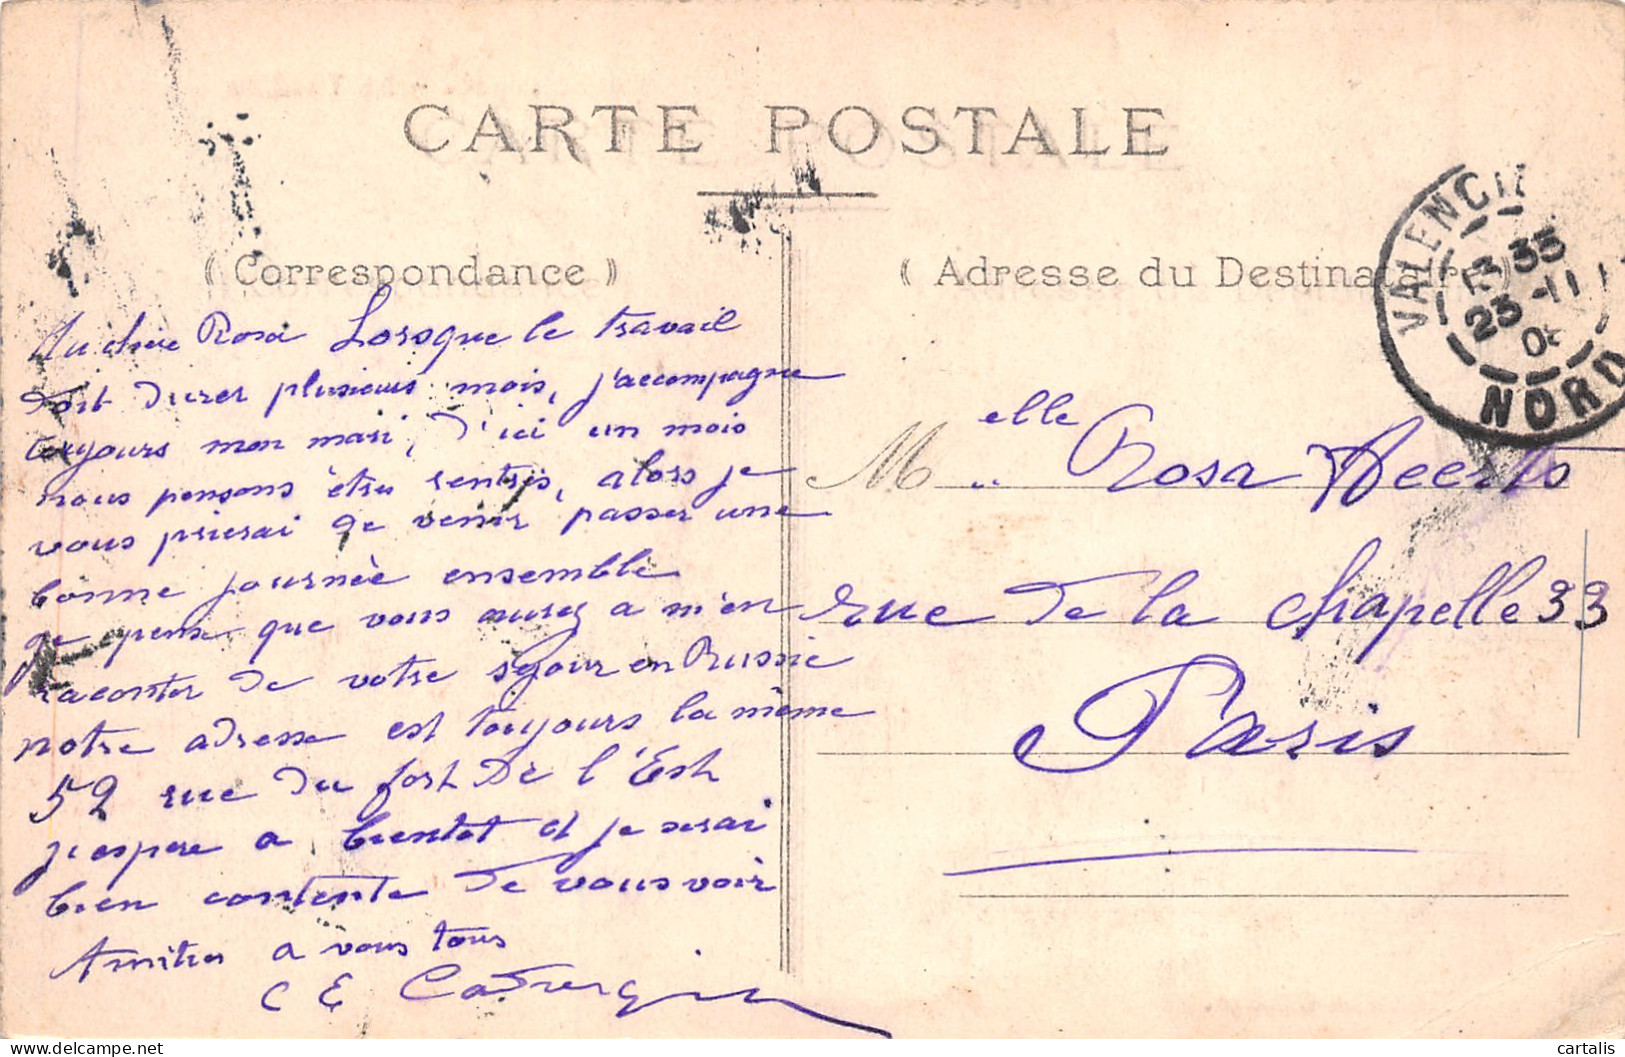 CARTE POSTALE
( Correspondance )
Rosa Lorsque le travail
doit durer plusieurs mois, j'accompagne
toujours mon mari, d'ici un mois
nous pensons être rentrés, alors je
vous prierai de venir passer une
bonne journée ensemble
je pense que vous aurez a m'en
raconter de votre sejour en Russie
notre adresse est toujours la même
52 rue du fort De l'Est
j'espere a bientot et je serai
bien contente de vous voir
Amities a vous tous
C E
( Adresse du Destinataire )
VALENCI
35
23 -11
0
NORD
M elle Rosa
rue de la chapelle 33
Paris
cartalis